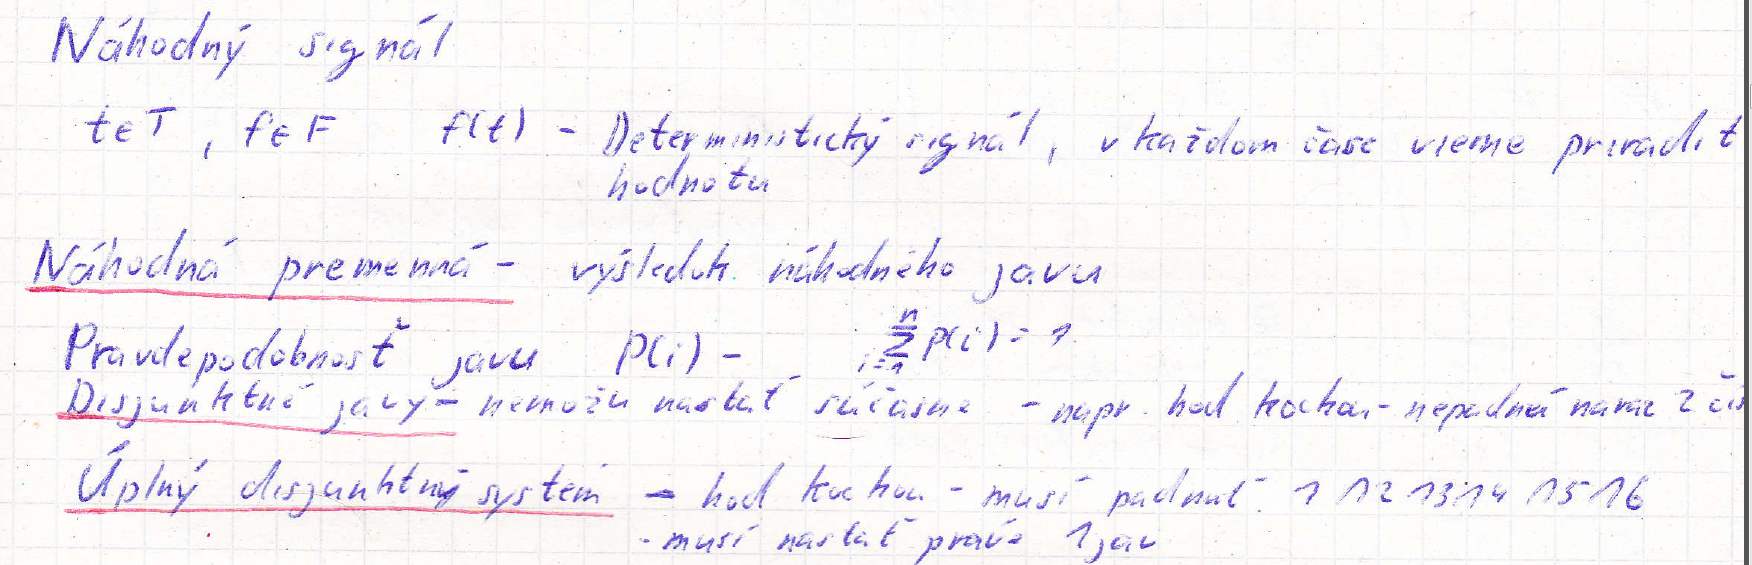 Náhodný signál
t∈T, f∈F f(t) - Deterministický signál, v každom čase vieme priradiť
hodnotu
Náhodná premenná - výsledok náhodného javu
Pravdepodobnosť javu P(i) - \sum_{i=1}^{n} P(i) = 1
Disjunktné javy - nemôžu nastať súčasne - napr. hod kockou - nepadnú naraz 2
Úplný disjunktný systém - hod kockou - musí padnúť 1 ∧ 2 ∧ 3 ∧ 4 ∧ 5 ∧ 6
- musí nastať práve 1 jav